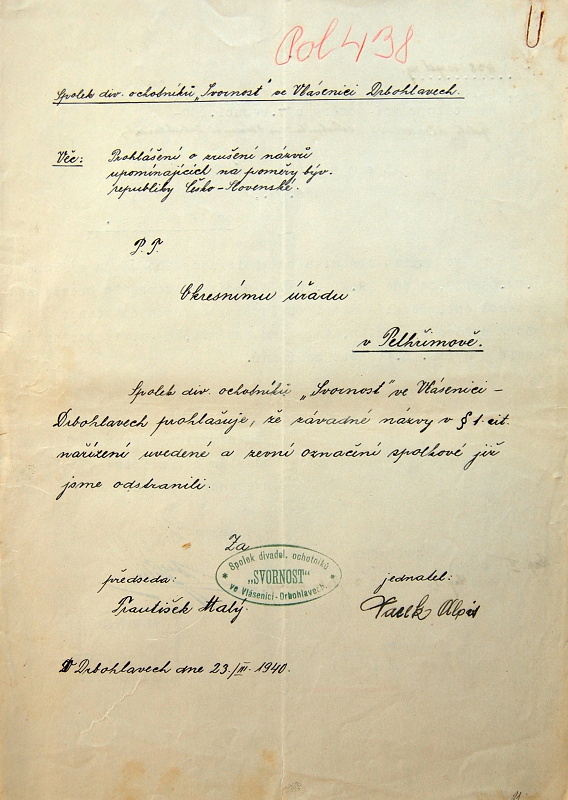 Pol 438
Spolek div. ochotníků „Svornost“ ve Vlásenici Drbohlavech.
Věc: Prohlášení o zrušení názvů
upomínajících na poměry býv.
republiky Česko-Slovenské.
P. T.
Okresnímu úřadu
v Pelhřimově.
Spolek div. ochotníků „Svornost“ ve Vlásenici –
Drbohlavech prohlašuje, že závadné názvy v § 1. cit.
nařízení uvedené a zevní označení spolkové již
jsme odstranili.
Za
Spolek divadel. ochotníků
„SVORNOST“
ve Vlásenici-Drbohlavech.
předseda:
František Malý.
jednatel:
Alois
V Drbohlavech dne 23./III. 1940.